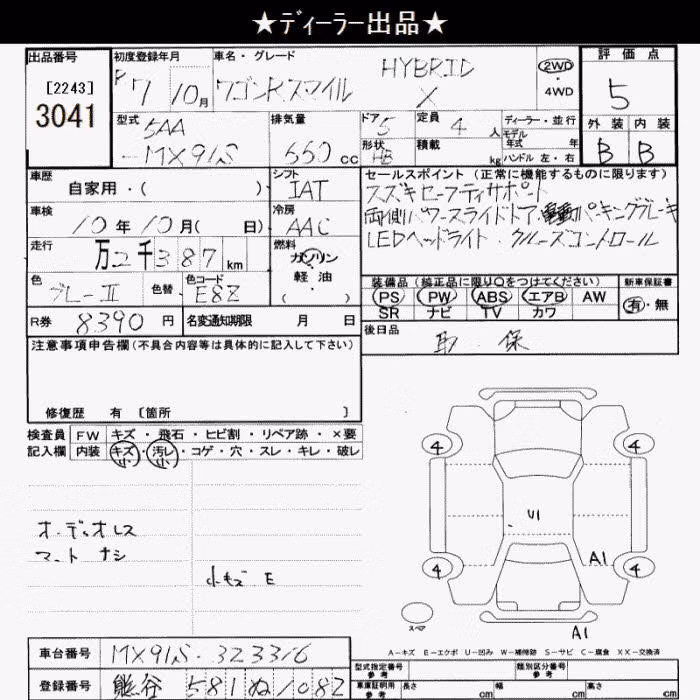 ★ディーラー出品★
出品番号 初度登録年月 車名・グレード 評価点
[2243] R7 10月 ワゴンRスマイル HYBRID X 2WD・4WD 5
3041
型式 5AA-MX91S 排気量 660cc ドア 5 定員 4人 ディーラー・並行
形状 HB 積載 kg モデル年式 年 ハンドル 左・右
外装 内装
B B
車歴 自家用・( ) シフト IAT セールスポイント (正常に機能するものに限ります)
車検 10年10月( 日) 冷房 AAC スズキセーフティサポート
両側パワースライドドア,電動パーキングブレーキ
走行 万2千387km 燃料 ガソリン 軽・油 ( ) LEDヘッドライト・クルーズコントロール
色 グレーⅡ 色替 色コード E8Z
装備品 (純正品に限り○をつけてください) 新車保証書
PS PW ABS エアB AW 有・無
SR ナビ TV カワ
R券 8390円 名変通知期限 月 日 後日品
取・保
注意事項申告欄 (不具合内容等は具体的に記入して下さい)
修復歴 有 [箇所 ]
検査員記入欄 FW キズ・飛石・ヒビ割・リペア跡・×要
内装 キズ小・汚レ小・コゲ・穴・スレ・キレ・破レ
4 4
U1
オーディオレス
マット ナシ
小キズ E
A1
4 4
スペア
A1
A-キズ E-エクボ U-凹み W-補修跡 S-サビ C-腐食 XX-交換済
車台番号 MX91S-323316
型式指定番号 参考 類別区分番号 参考
登録番号 熊谷 581 ぬ 1082
車庫証明用 参考 長さ cm 幅 cm 高さ cm